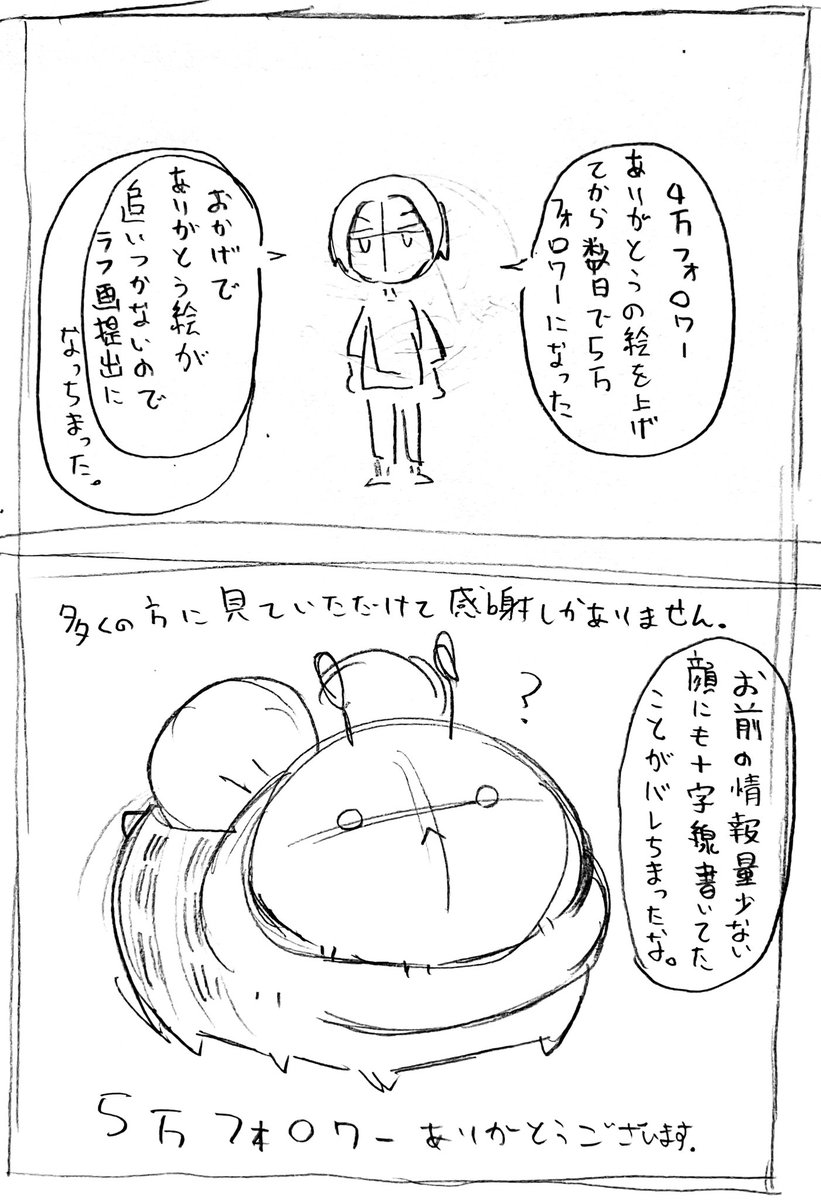 4万フォロワー
ありがとうの絵を上げ
てから数日で5万
フォロワーになった
おかげで
ありがとう絵が
追いつかないので
ラフ画提出に
なっちまった。
多くの方に見ていただけて感謝しかありません。
?
お前の情報量少ない
顔にも十字線書いてた
ことがバレちまったな。
5万フォロワーありがとうございます.